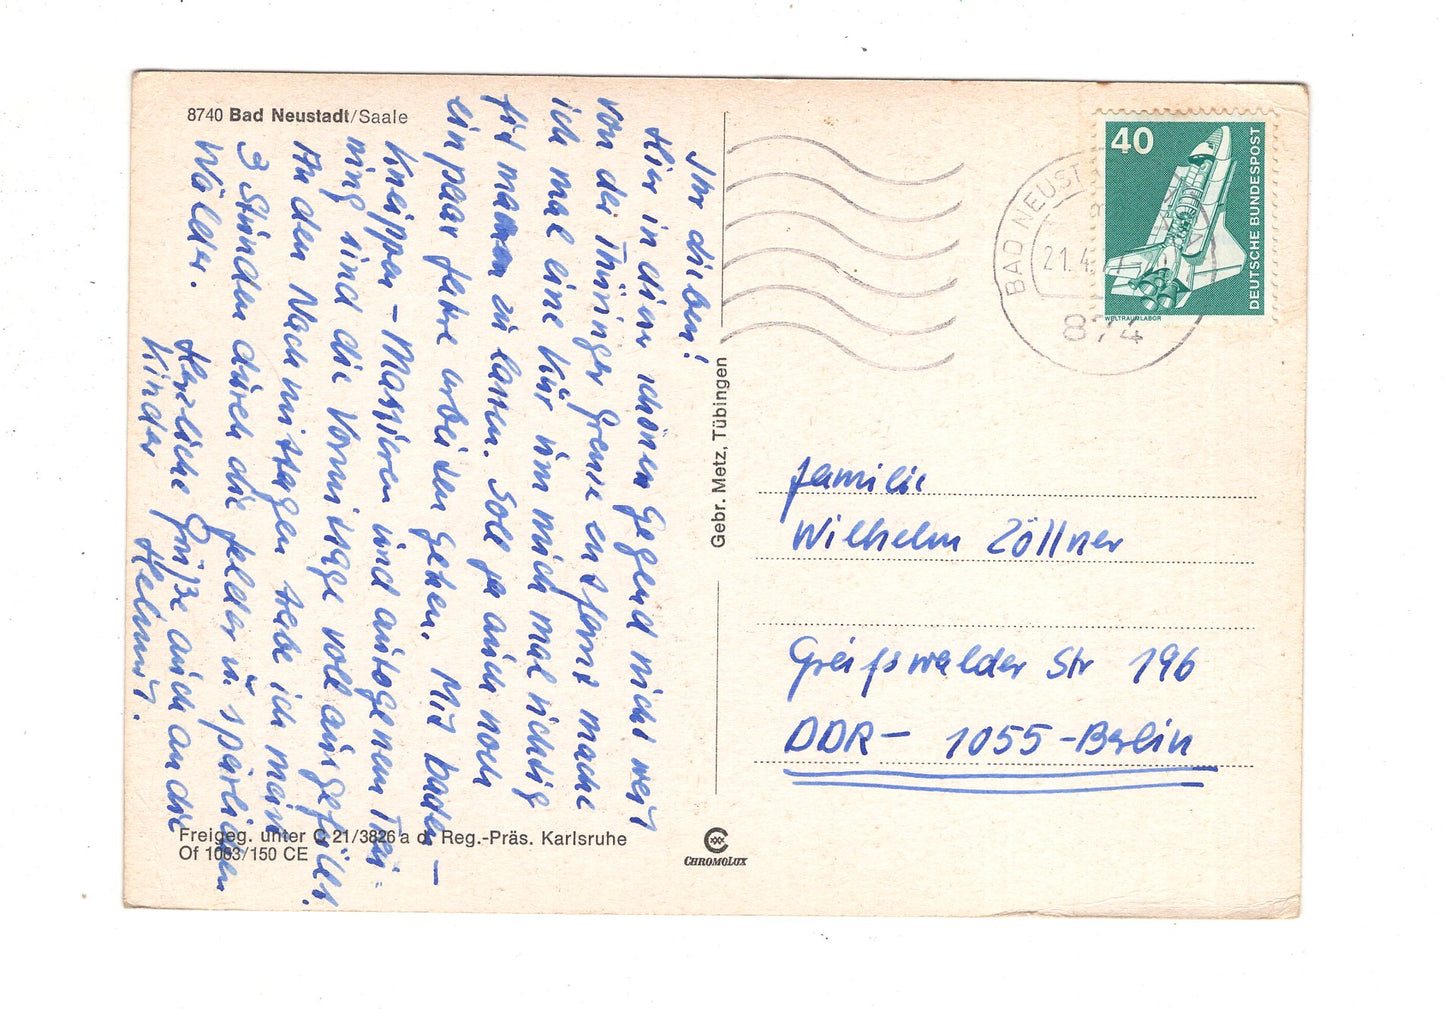 8740 Bad Neustadt/Saale
Ihr Lieben!
Hier in dieser schönen Gegend nicht weit
von der Thüringer Grenze entfernt mache
ich mal eine Kur um mich mal richtig
fit machen zu lassen. Soll ja auch noch
ein paar Jahre arbeiten gehen. Mit baden -
Kneippen - Massieren und autogenem Trai-
ning sind die Vormittage voll ausgefüllt.
An den Nachmittagen stehe ich meine
3 Stunden durch die Felder u. spärlichen
Wälder.
Herzliche Grüße auch an die
Kinder Helmut.
Gebr. Metz, Tübingen
Freigeg. unter C 21/3826 a d. Reg.-Präs. Karlsruhe
Of 1063/150 CE
CHROMOLUX
BAD NEUST
21.4.
874
40
DEUTSCHE BUNDESPOST
WELTRAUMLABOR
Familie
Wilhelm Zöllner
Greifswalder Str 196
DDR- 1055-Berlin